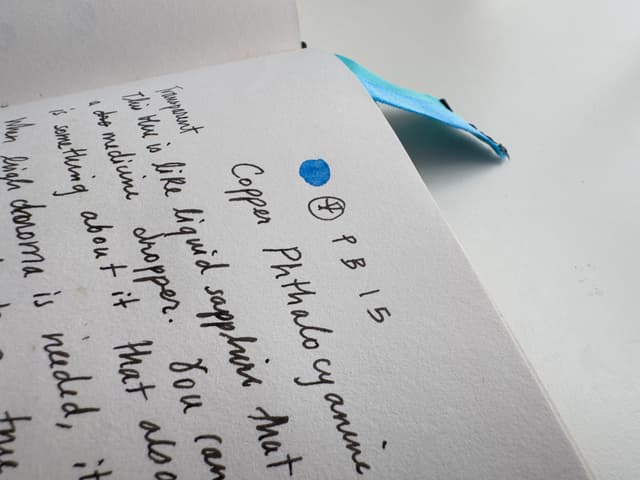 PB 15
Copper Phthalocyanine
Transparent
This Hue is like liquid sapphire that
a medicine dropper. You can
is something about it that also
When high chroma is needed, it
true